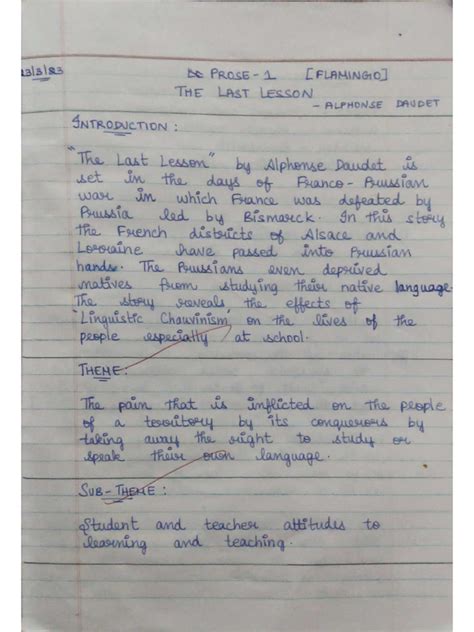 23/3/23 PROSE-1 [FLAMINGO]
THE LAST LESSON
- ALPHONSE DAUDET
INTRODUCTION :
"The Last Lesson" by Alphonse Daudet is
set in the days of Franco-Prussian
war in which France was defeated by
Prussia led by Bismarck. In this story
the French districts of Alsace and
Lorraine have passed into Prussian
hands. The Prussians even deprived
natives from studying their native language.
The story reveals the effects of
'Linguistic Chauvinism' on the lives of the
people especially at school.
THEME:
The pain that is inflicted on the people
of a territory by its conquerors by
taking away the right to study or
speak their own language.
SUB-THEME :
Student and teacher attitudes to
learning and teaching.